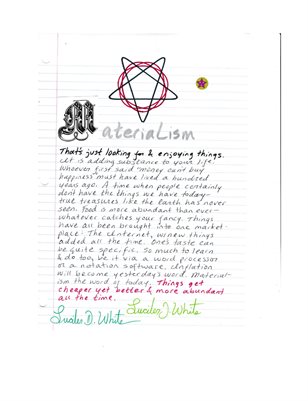 Materialism
That's just looking for & enjoying things.
It is adding substance to your life.
Whoever first said "money can't buy
happiness" must have lived a hundred
years ago. A time when people certainly
dont have the things we have today—
true treasures like the Earth has never
seen. Food is more abundant than ever—
whatever catches your fancy. Things
have all been brought into one market
place: The Internet, w/new things
added all the time. One's taste can
be quite specific. So much to learn
& do too, be it via a word processor
or a notation software, inflation
will become yesterday's word. Material-
ism the word of today. Things get
cheaper yet better & more abundant
all the time.
Lucifer J. White
White